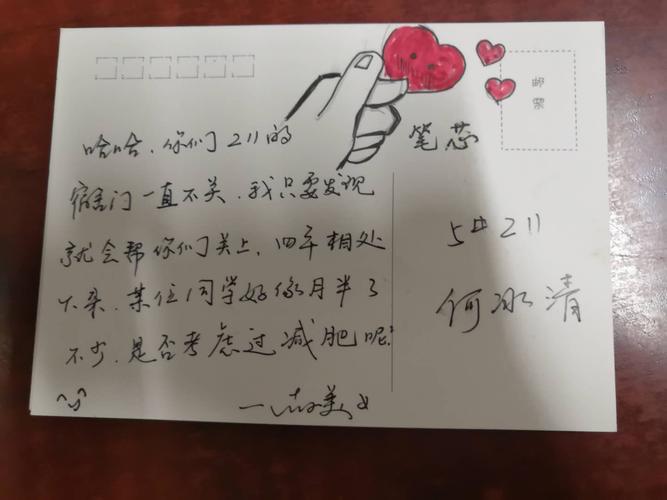 哈哈，你们211的
宿舍门一直不关，我只要发现
就会帮你们关上，四年相处
下来，某位同学好像月半了
不少，是否考虑过减肥呢？
笔芯
邮票
5#211
何冰清